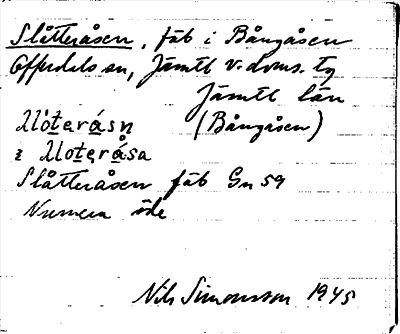 Slåtteråsen, fäb i Bångåsen
Offerdals sn, Jämtl v. doms. tg
Jämtl län
(Bångåsen)
i
Slåtteråsen fäb Gn 59
Numera öde
Nils Simonsson 1945